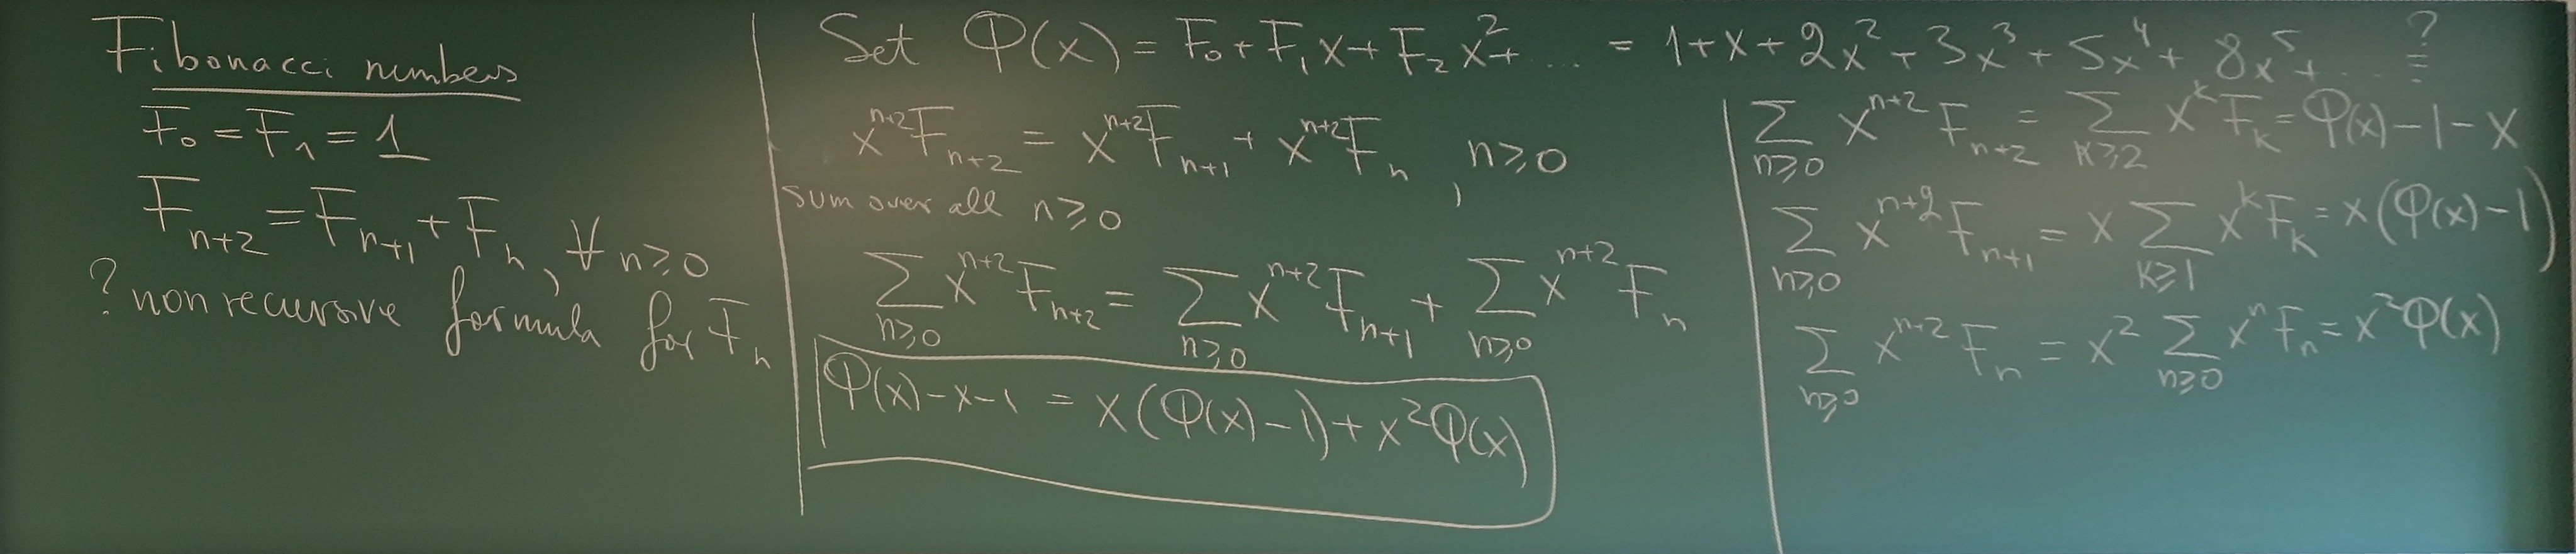 Fibonacci numbers
F₀ = F₁ = 1
Fₙ₊₂ = Fₙ₊₁ + Fₙ, ∀ n ⩾ 0
? non recursive formula for Fₙ
Set Φ(x) = F₀ + F₁x + F₂x² + ... = 1 + x + 2x² + 3x³ + 5x⁴ + 8x⁵ + ... ≟
xⁿ⁺²Fₙ₊₂ = xⁿ⁺²Fₙ₊₁ + xⁿ⁺²Fₙ, n ⩾ 0
sum over all n ⩾ 0
∑_{n⩾0} xⁿ⁺²Fₙ₊₂ = ∑_{n⩾0} xⁿ⁺²Fₙ₊₁ + ∑_{n⩾0} xⁿ⁺²Fₙ
Φ(x) - x - 1 = x(Φ(x) - 1) + x²Φ(x)
∑_{n⩾0} xⁿ⁺²Fₙ₊₂ = ∑_{k⩾2} xᵏFₖ = Φ(x) - 1 - x
∑_{n⩾0} xⁿ⁺²Fₙ₊₁ = x ∑_{k⩾1} xᵏFₖ = x(Φ(x) - 1)
∑_{n⩾0} xⁿ⁺²Fₙ = x² ∑_{n⩾0} xⁿFₙ = x²Φ(x)